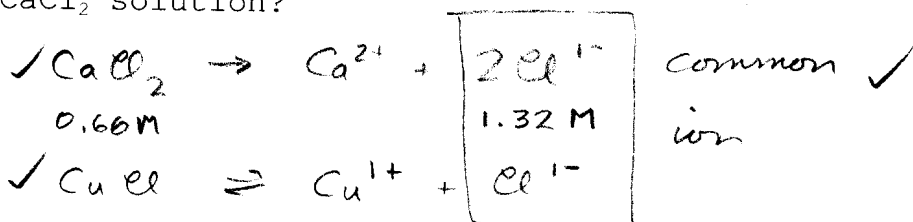 CaCl₂ solution?
✓ CaCl₂ → Ca²⁺ + 2Cl¹⁻ common ✓
0.66M 1.32 M ion
✓ CuCl ⇌ Cu¹⁺ + Cl¹⁻